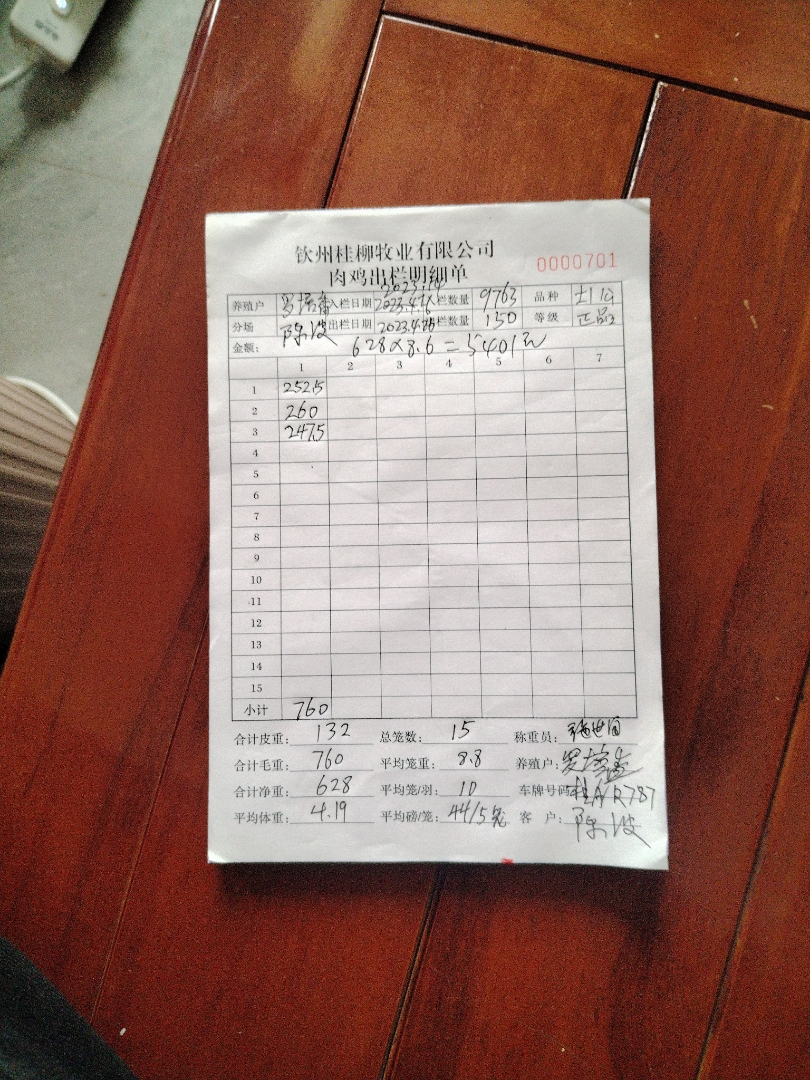 钦州桂柳牧业有限公司
肉鸡出栏明细单
0000701
养殖户 入栏日期 2023.4.16 栏数量 9763 品种 土1公
分场 陈波 出栏日期 2023.4.25 栏数量 150 等级 正品
金额： 628×8.6=5401元
1 2 3 4 5 6 7
1 252.5
2 260
3 247.5
4
5
6
7
8
9
10
11
12
13
14
15
小计 760
合计皮重： 132 总笼数： 15 称重员：
合计毛重： 760 平均笼重： 8.8 养殖户：
合计净重： 628 平均笼/羽： 10 车牌号码 R787
平均体重： 4.19 平均磅/笼： 44/5笼 客 户： 陈波